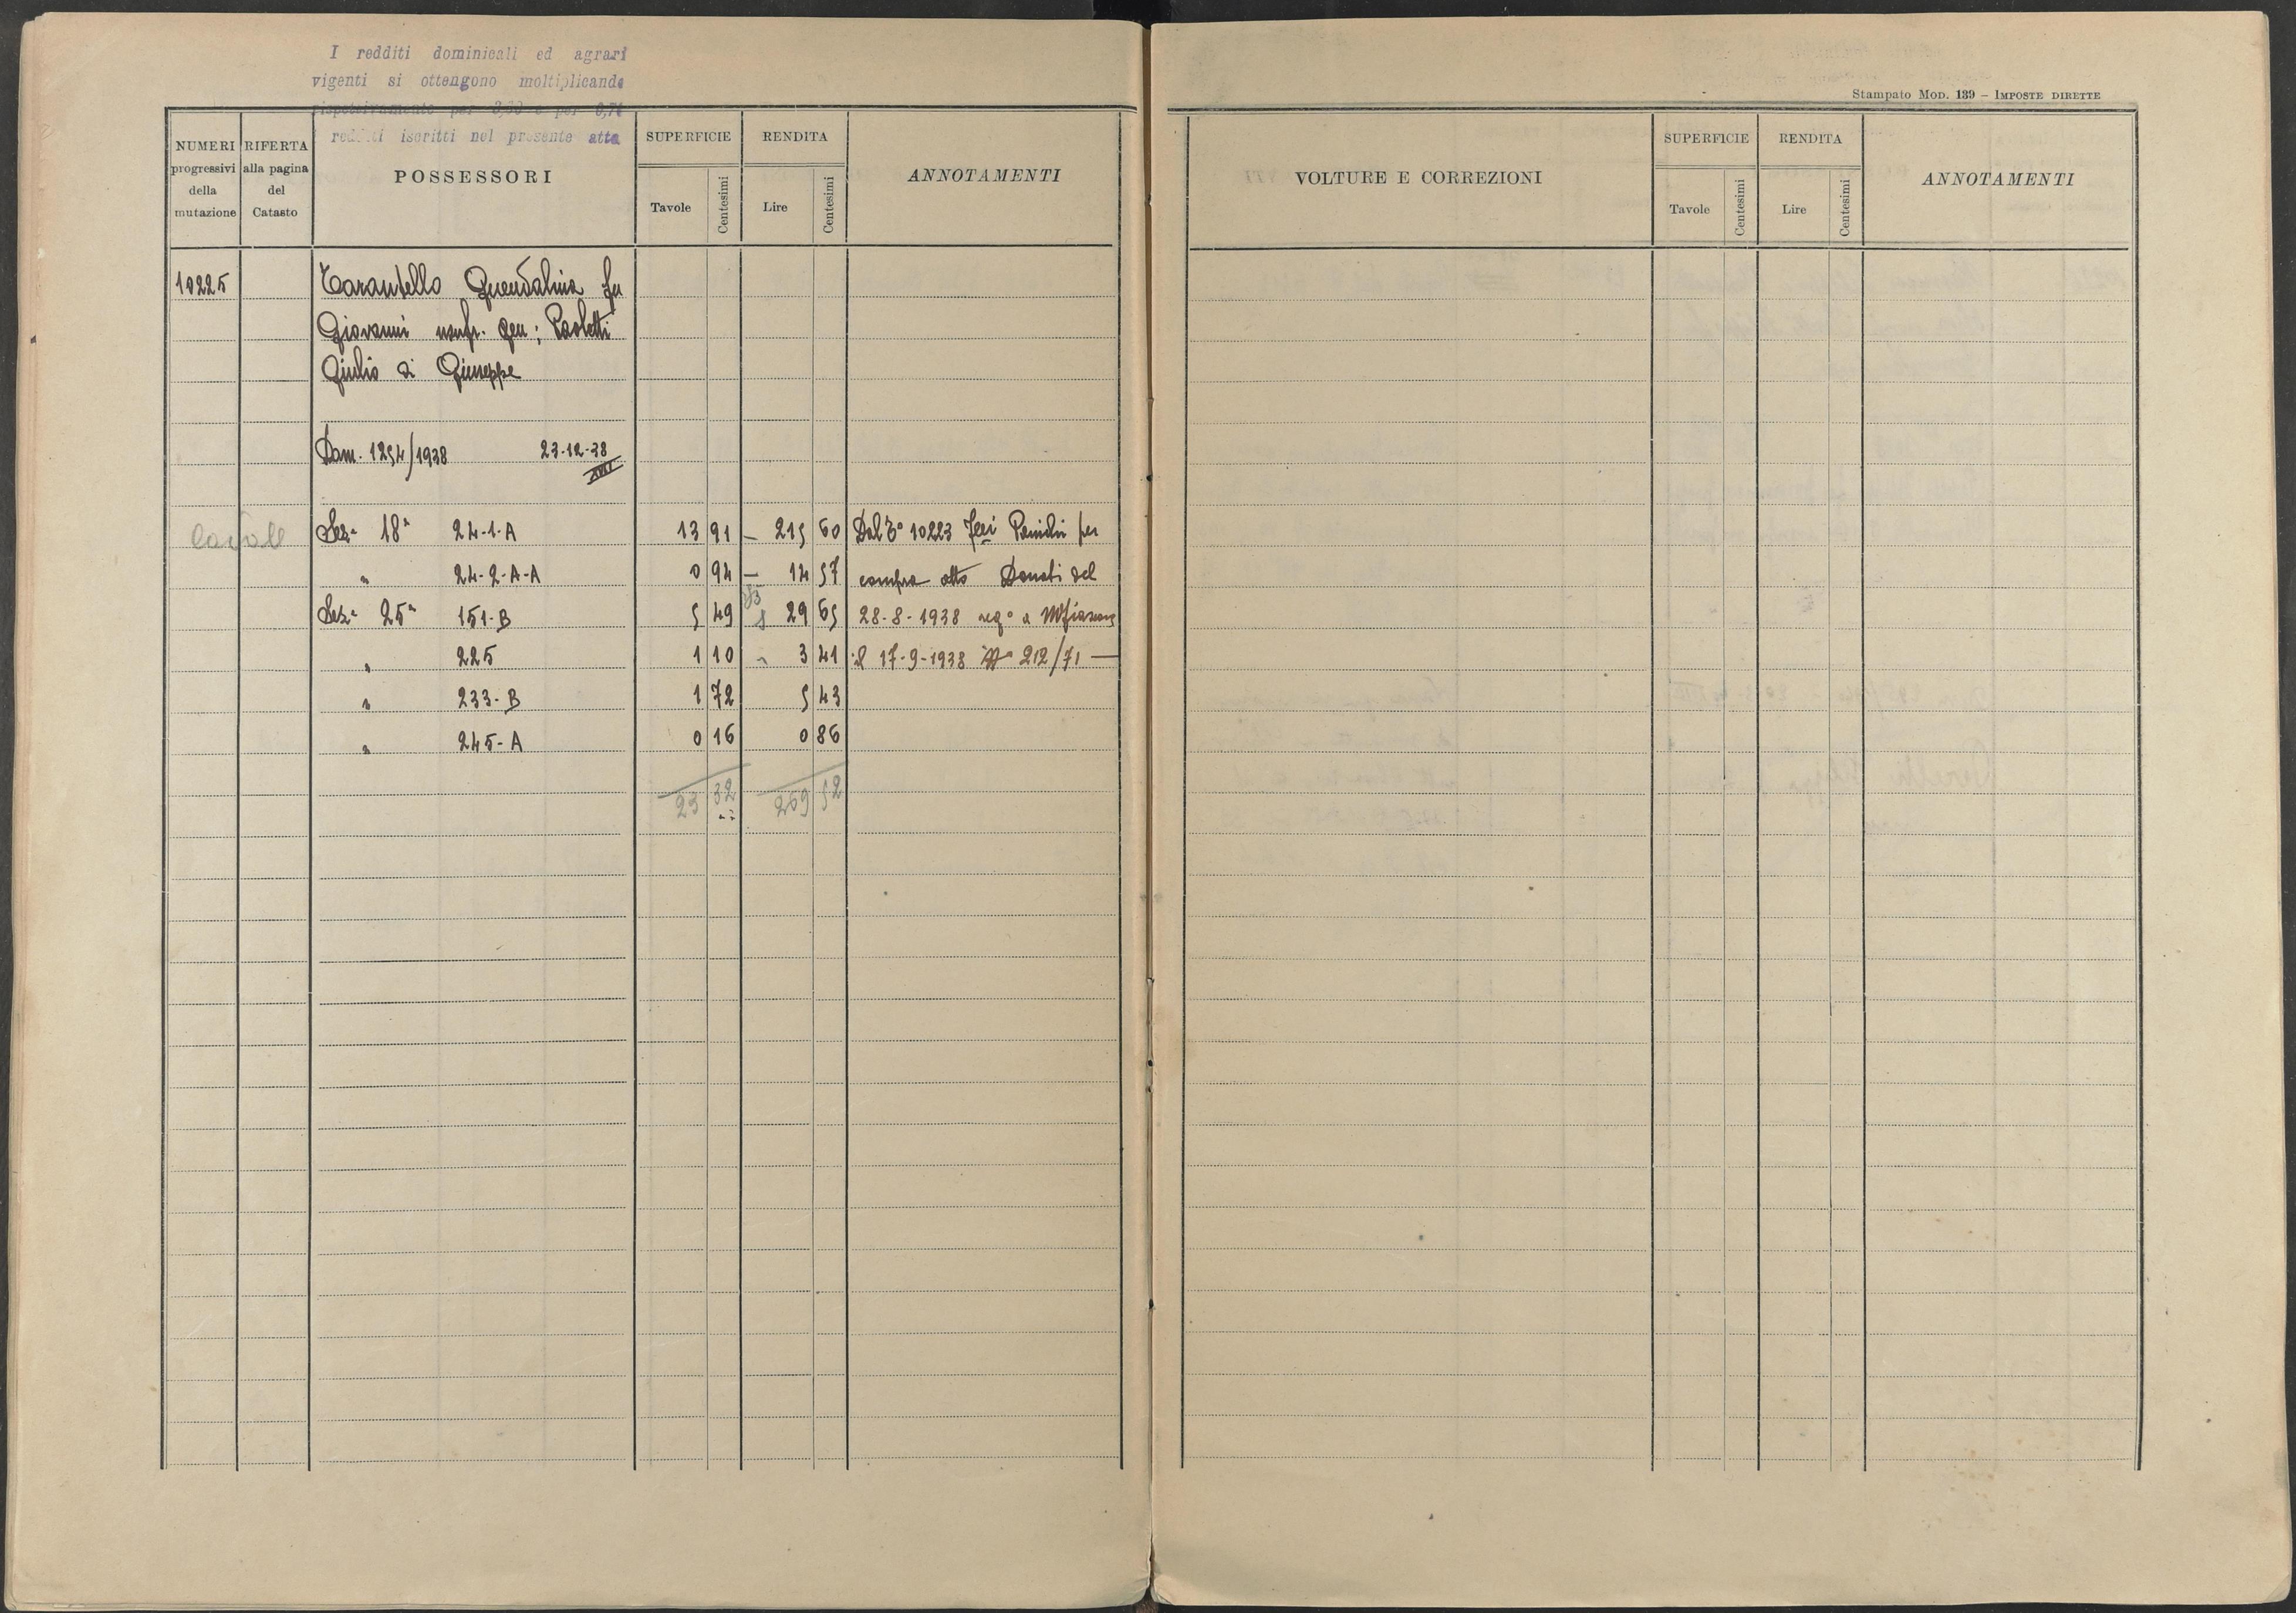 I redditi dominicali ed agrari
vigenti si ottengono moltiplicando
rispettivamente per e per 0,7
redditi iscritti nel presente atto
Stampato Mod. 139 – Imposte dirette
NUMERI progressivi della mutazione
RIFERTA alla pagina del Catasto
POSSESSORI
SUPERFICIE
Tavole
Centesimi
RENDITA
Lire
Centesimi
ANNOTAMENTI
VOLTURE E CORREZIONI
SUPERFICIE
Tavole
Centesimi
RENDITA
Lire
Centesimi
ANNOTAMENTI
10225 Tarantello Guendalina fu
Giovanni usufr. gen; Paoletti
Giulio di Giuseppe
Dom. 1254/1938 23-12-38
XVII
Sez.a 18a 24-1-A 13 91 – 215 60 Dal To 10223 per
" 24-2-A-A 0 94 – 14 57 compra atto Donati del
Sez.a 25a 151-B 5 49 29 65 28-8-1938 rego a
" 225 1 10 " 3 41 il 17-9-1938 No 212/71 —
" 233-B 1 72 5 43
" 245-A 0 16 0 86
23 32 269 52